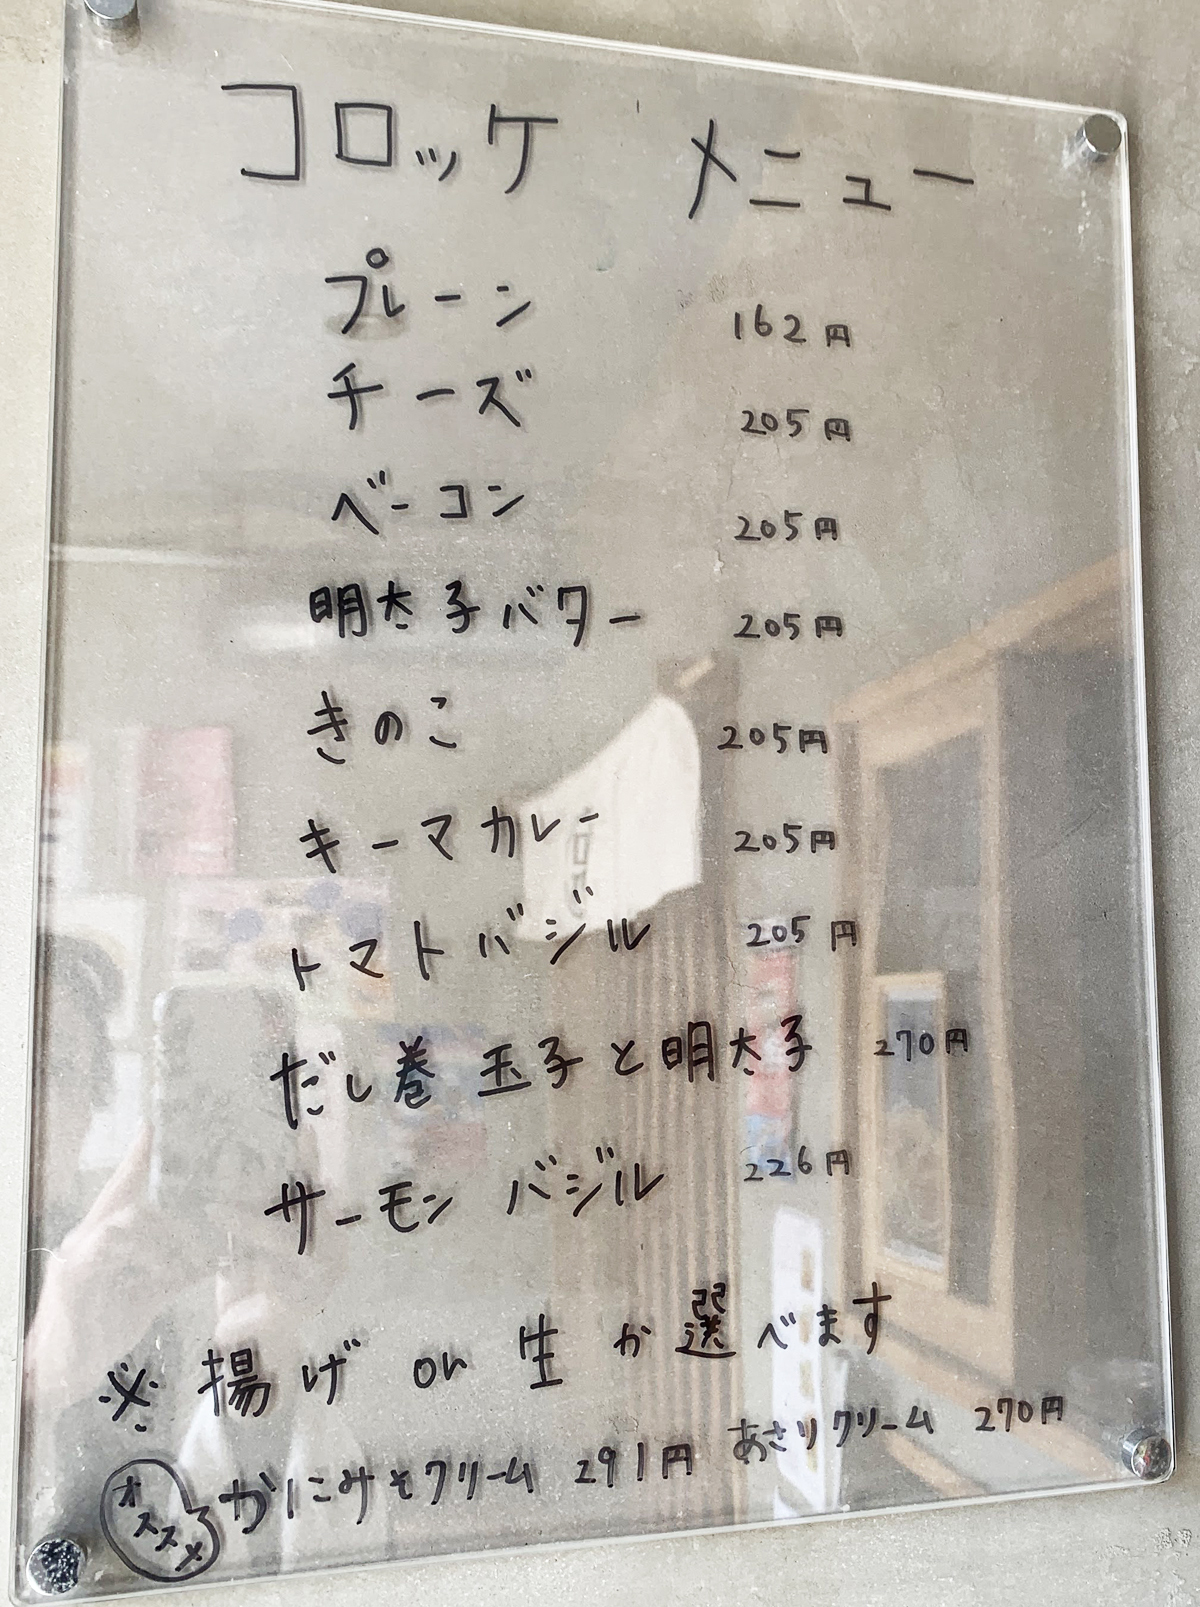 コロッケ メニュー
プレーン 162円
チーズ 205円
ベーコン 205円
明太子バター 205円
きのこ 205円
キーマカレー 205円
トマトバジル 205円
だし巻玉子と明太子 270円
サーモンバジル 226円
※揚げ or 生か選べます
オススメ かにみそクリーム 291円 あさりクリーム 270円